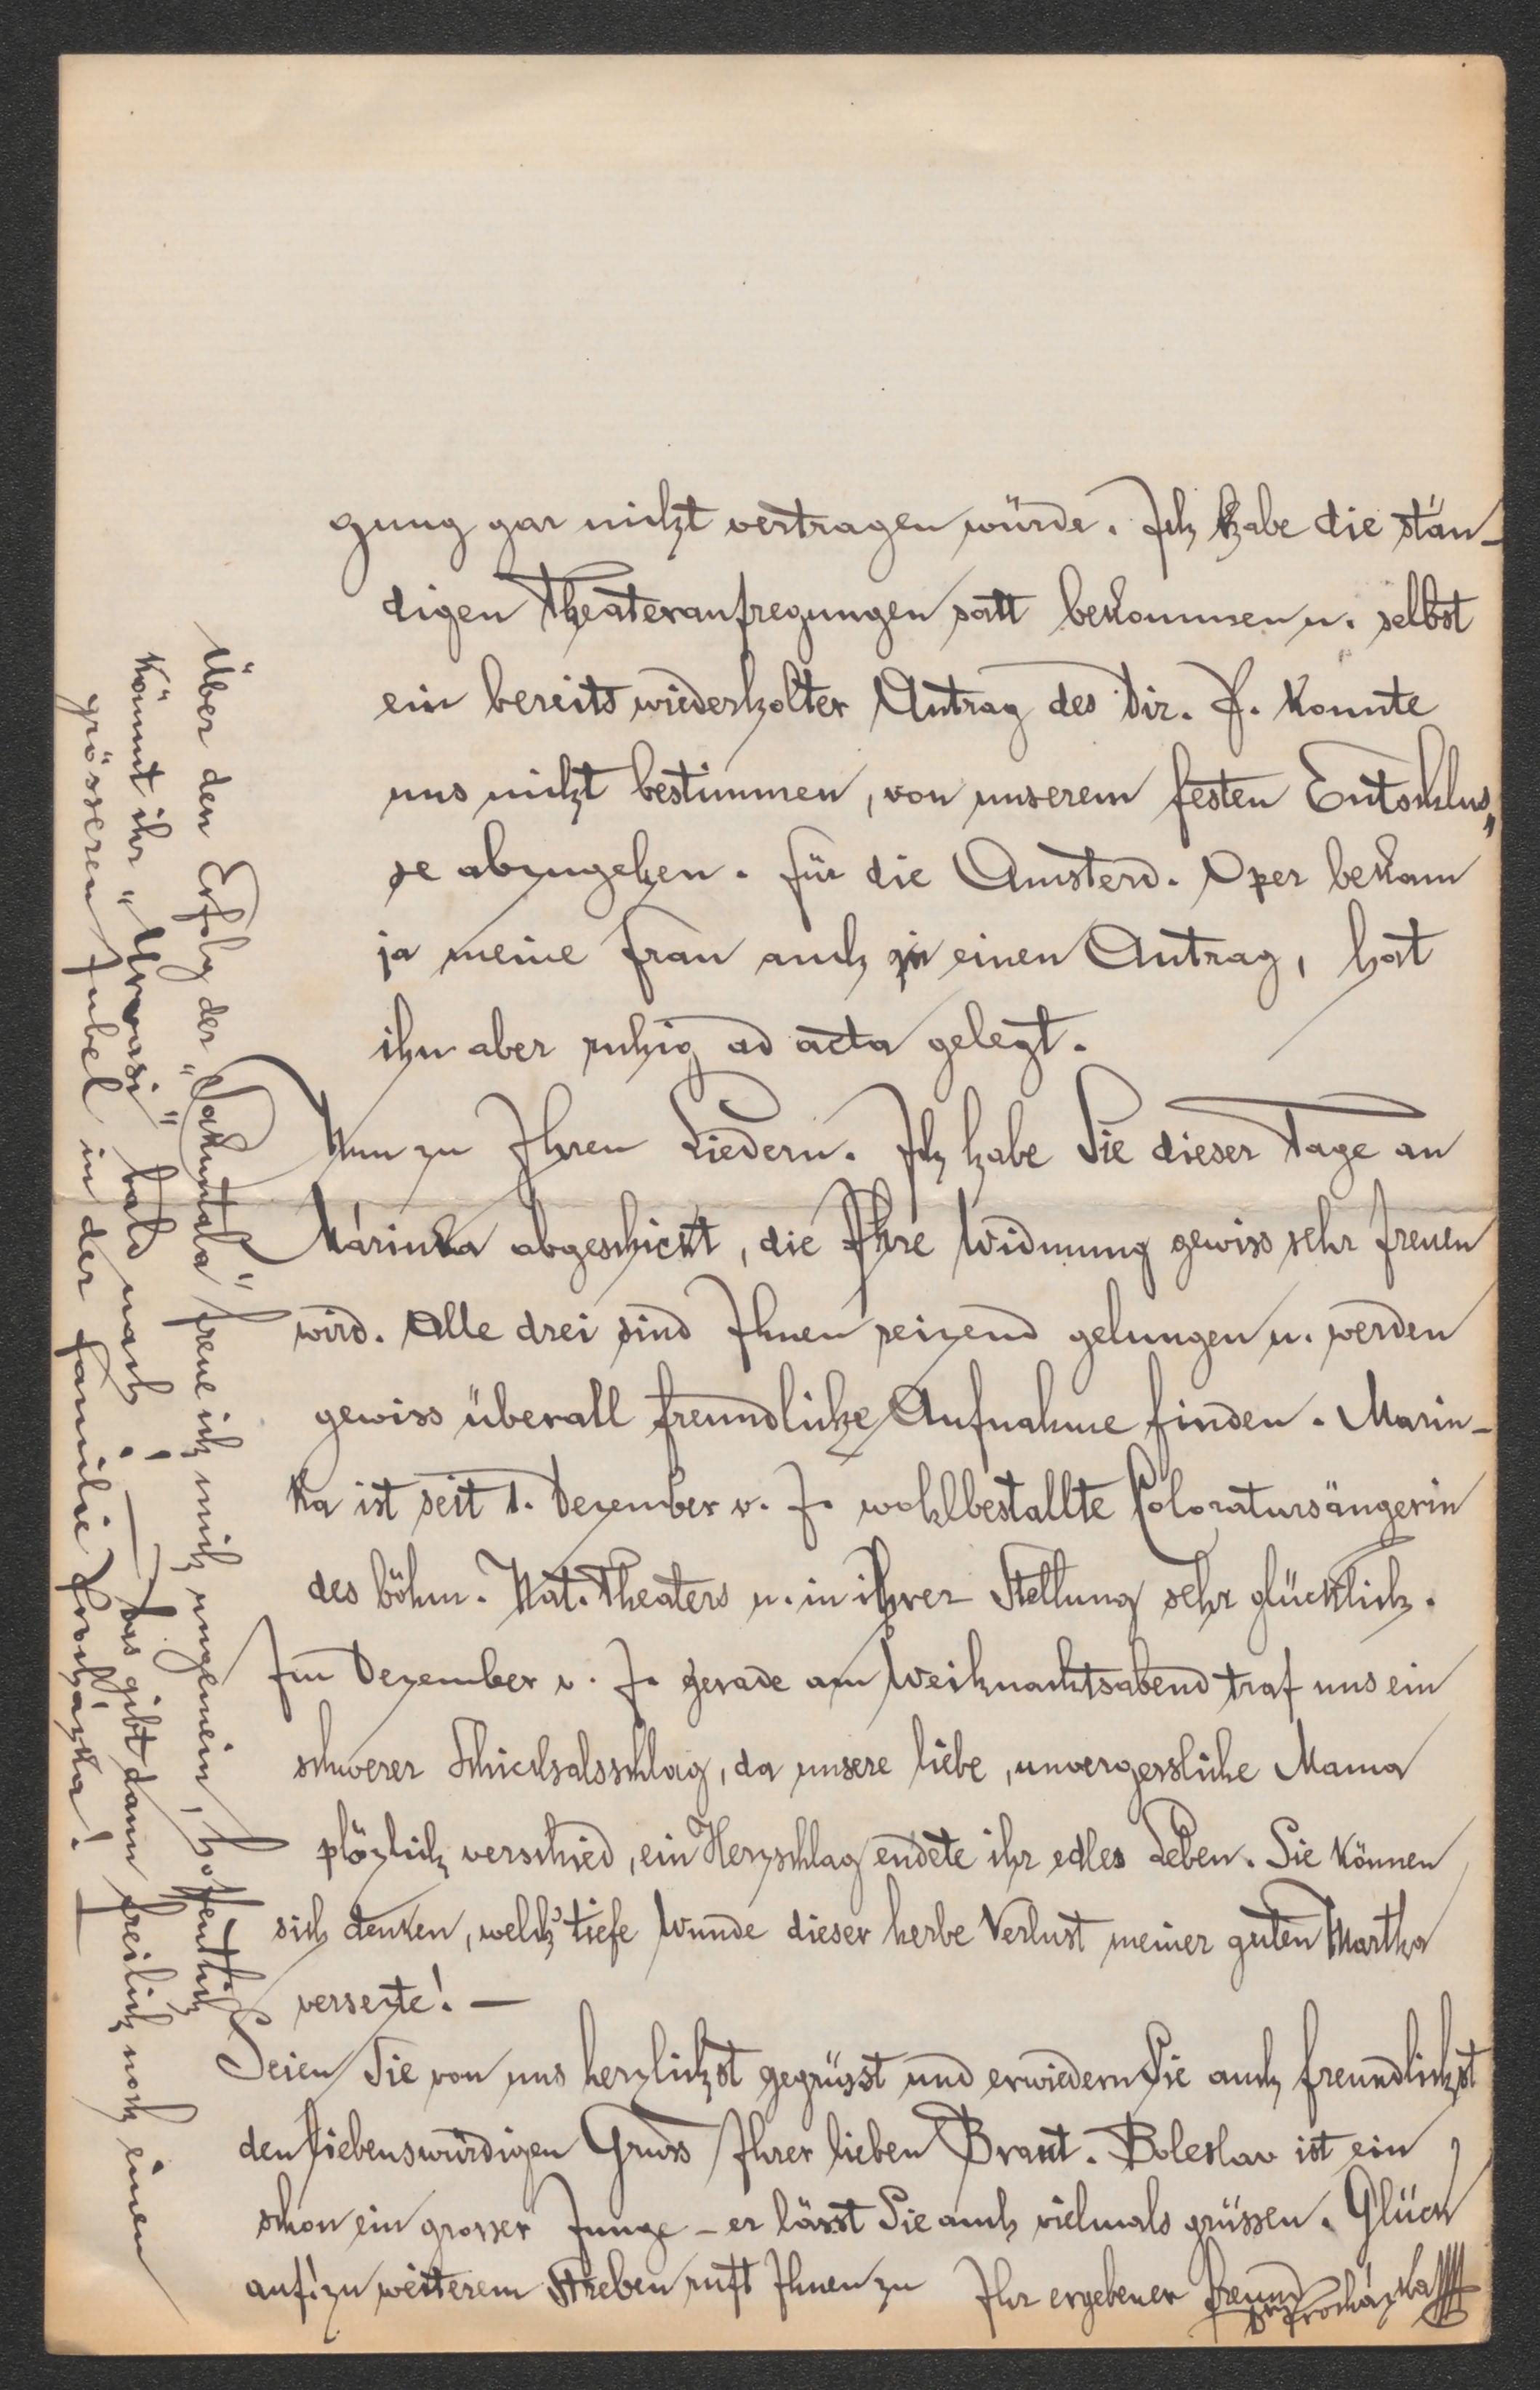 gung gar nicht vertragen würde. Ich habe die stän-
digen Theateraufregungen satt bekommen u. selbst
ein bereits wiederholter Antrag des Dir. J. konnte
uns nicht bestimmen, von unserem festen Entschlus„
se abzugehen. Für die Amsterd. Oper bekam
ja meine Frau auch einen Antrag, hat
ihn aber ruhig ad acta gelegt.
Nun zu Ihren Liedern. Ich habe Sie dieser Tage an
Márinka abgeschickt, die Ihre Widmung gewiss sehr freuen
wird. Alle drei sind Ihnen reizend gelungen u. werden
gewiss überall freundliche Aufnahme finden. Marin-
ka ist seit 1. Dezember v. J. wohlbestallte Coloratursängerin
des böhm. Nat. Theaters u. in ihrer Stellung sehr glücklich.
Im Dezember v. J. gerade am Weihnachtsabend traf uns ein
schwerer Schicksalsschlag, da unsere liebe, unvergessliche Mama
plözlich verschied, ein Herzschlag endete ihr edles Leben. Sie können
sich denken, welch' tiefe Wunde dieser herbe Verlust meiner guten Martha
versezte! —
Seien Sie von uns herzlichst gegrüsst und erwiedern Sie auch freundlichst
den liebenswürdigen Gruss Ihrer lieben Braut. Boleslav ist ein
schon ein grosser Junge – er lässt Sie auch vielmals grüssen. Glück
auf! zu weiterem Streben ruft Ihnen zu Ihr ergebener Freund
Dr Procházka
Über den Erfolg der „Sakuntala" freue ich mich ungemein, hoffentlich
kömmt ihr „Urvasi" bald nach! — Das gibt dann freilich noch einen
grösseren Jubel in der Familie Procházka! —